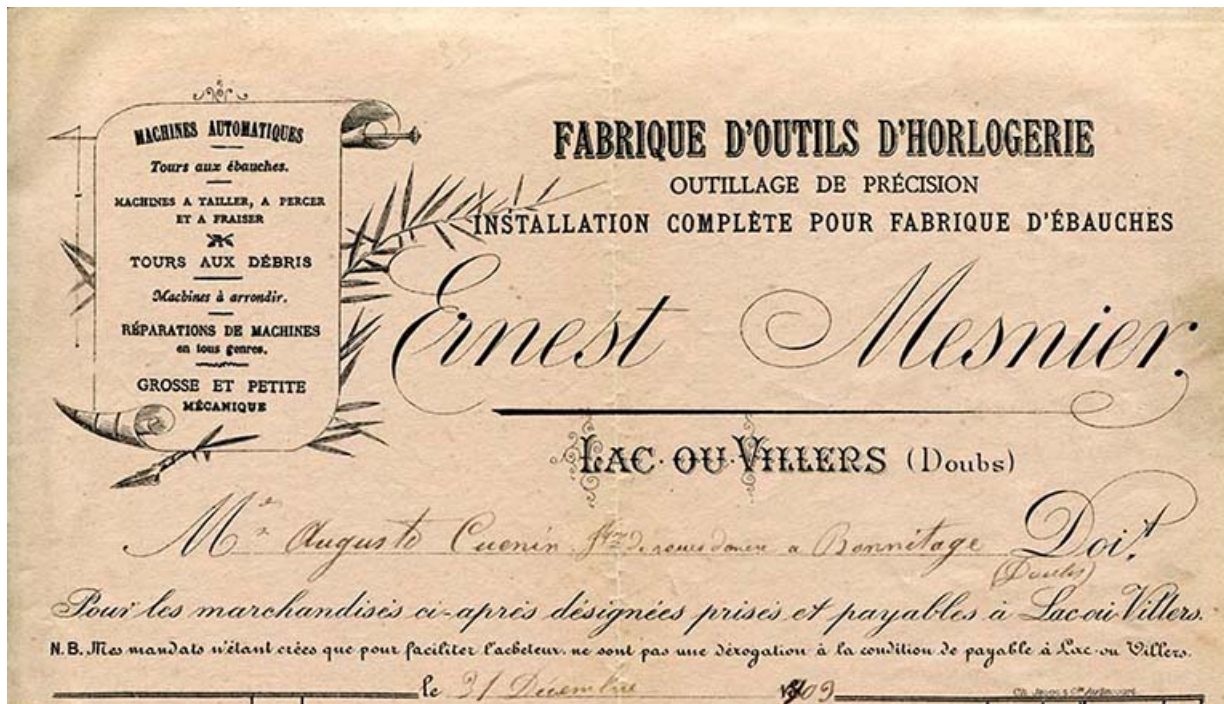 MACHINES AUTOMATIQUES
Tours aux ébauches.
MACHINES A TAILLER, A PERCER
ET A FRAISER
TOURS AUX DÉBRIS
Machines à arrondir.
RÉPARATIONS DE MACHINES
en tous genres.
GROSSE ET PETITE
MÉCANIQUE
FABRIQUE D'OUTILS D'HORLOGERIE
OUTILLAGE DE PRÉCISION
INSTALLATION COMPLÈTE POUR FABRIQUE D'ÉBAUCHES
Ernest Mesnier,
LAC-OU-VILLERS (Doubs)
Mr Auguste Cuenin a Bonnétage Doit
(Doubs)
Pour les marchandises ci-après désignées prises et payables à Lac-ou-Villers.
N.B. Mes mandats n'étant crées que pour faciliter l'acheteur, ne sont pas une dérogation à la condition de payable à Lac-ou Villers.
le 31 Décembre 1909